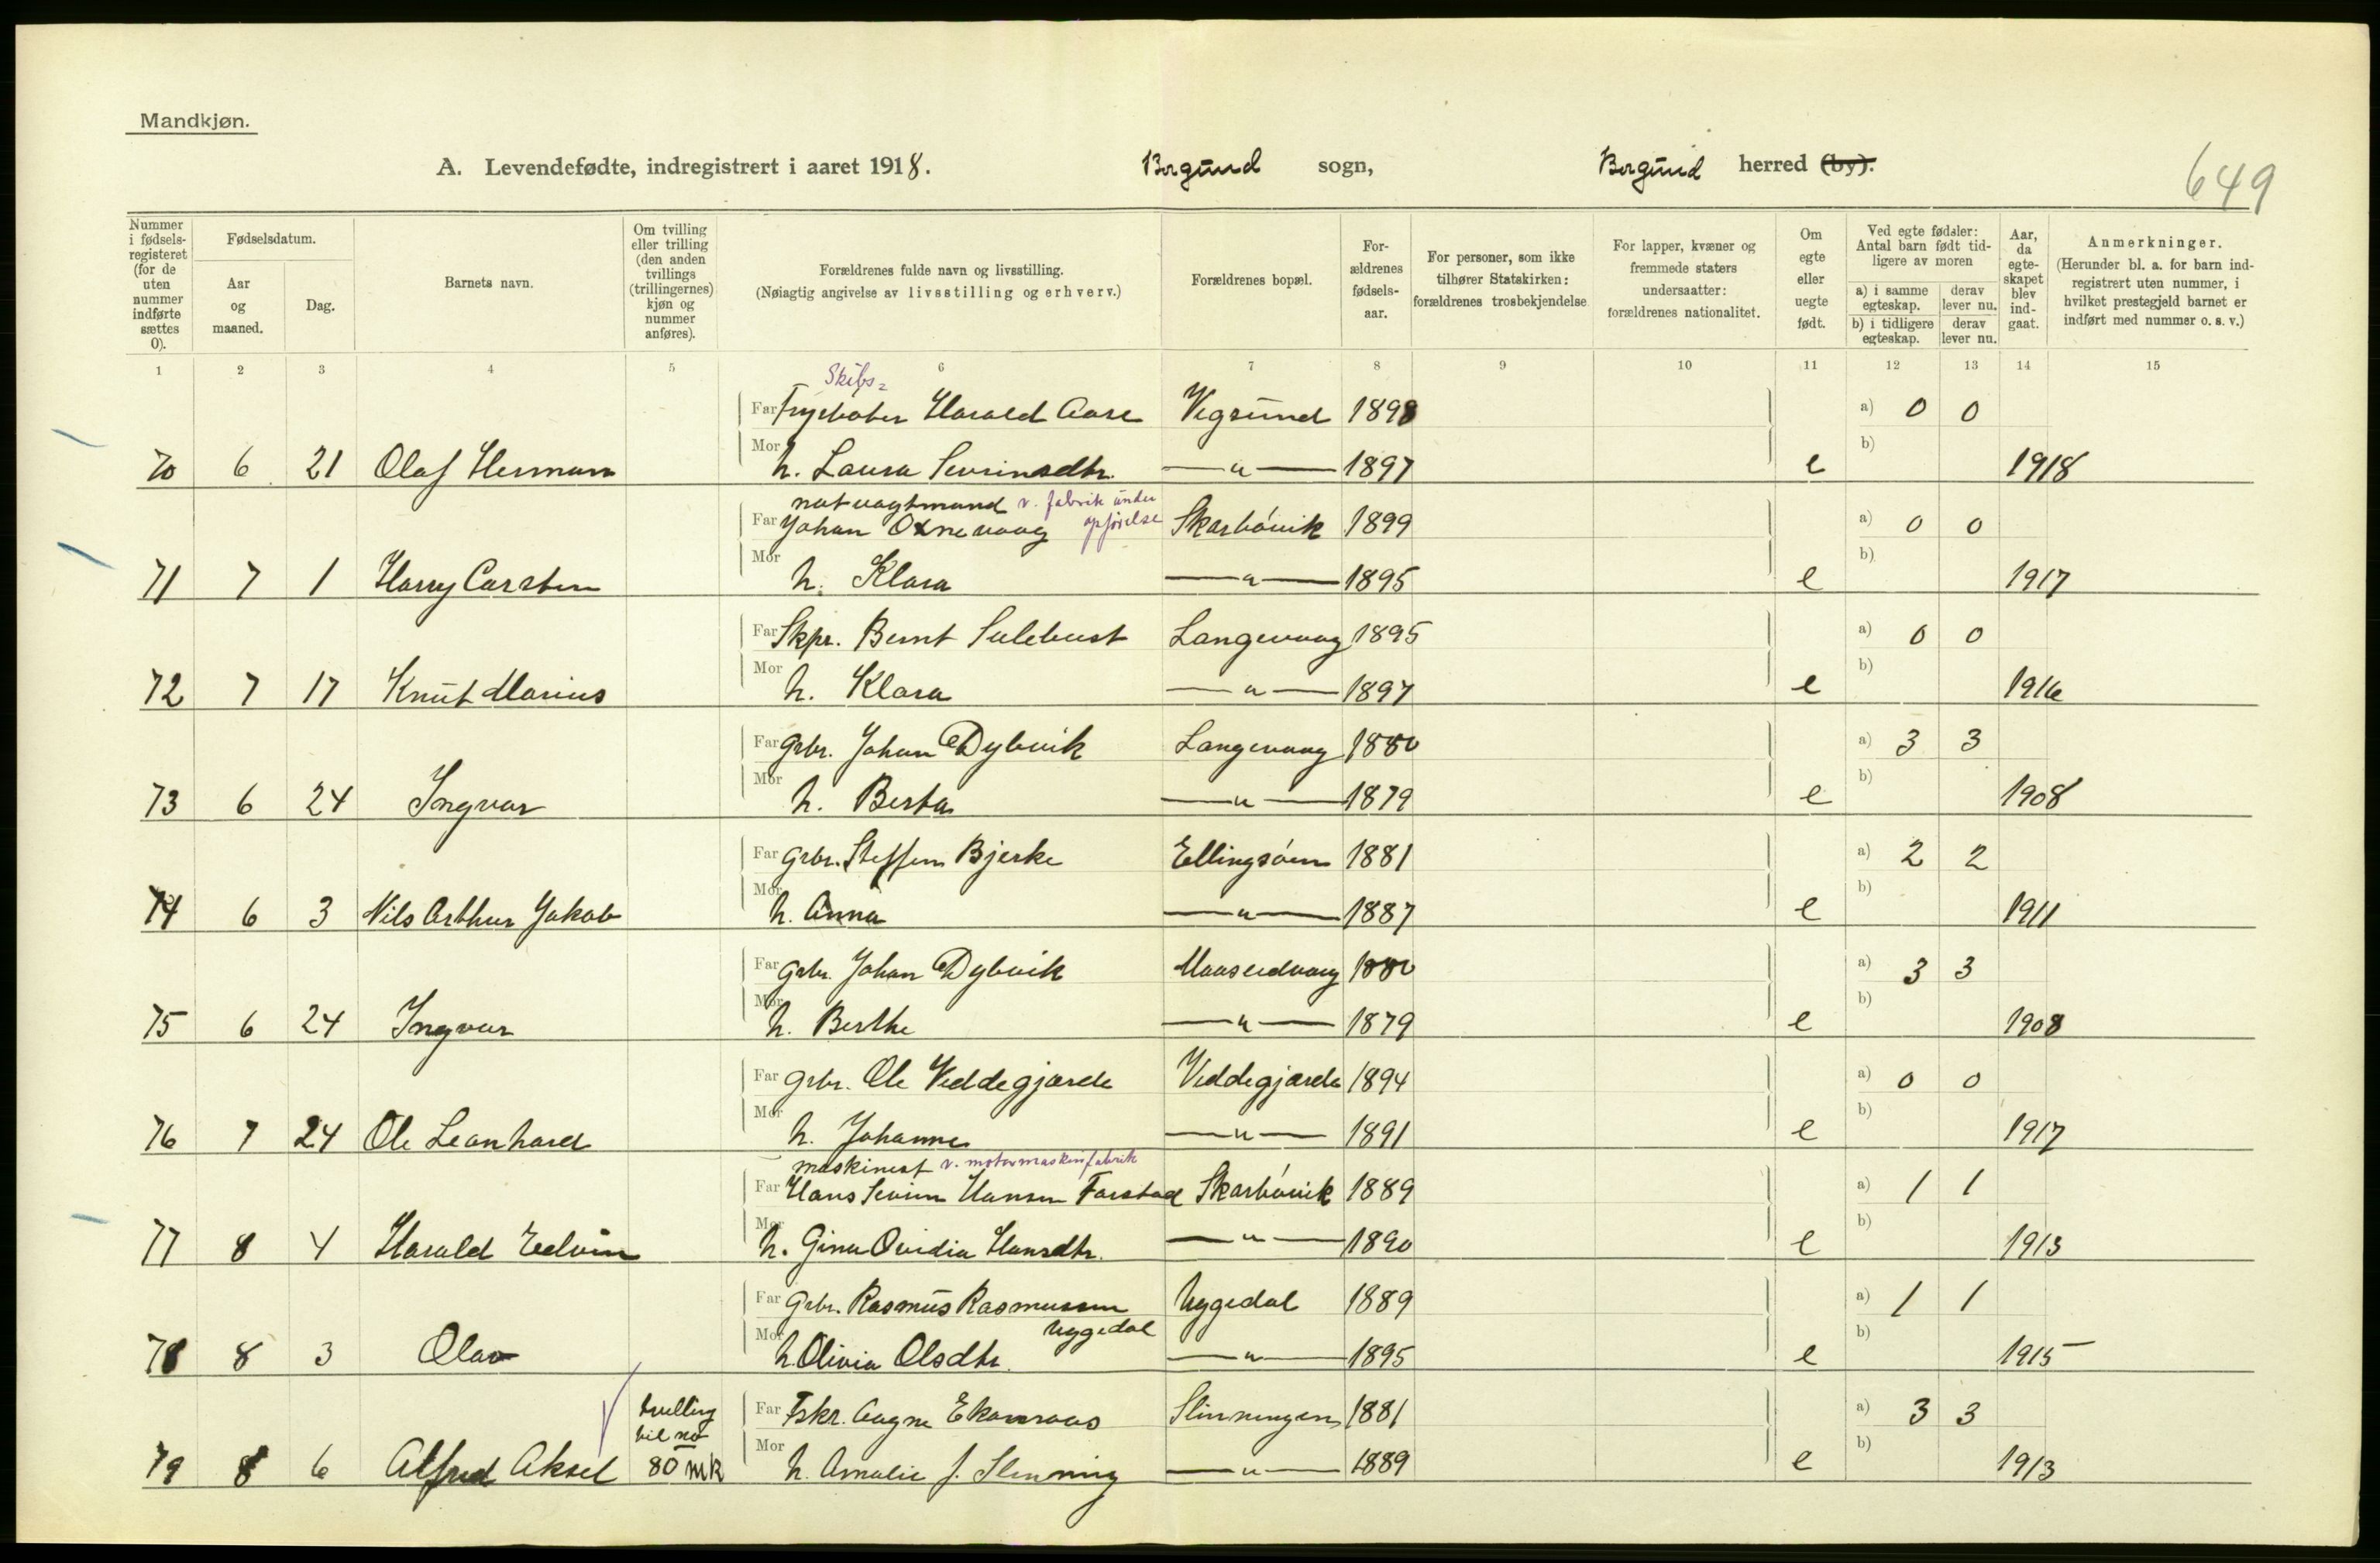 Mandkjøn.
A. Levendefødte, indregistrert i aaret 1918. Borgund sogn, Borgund herred (by).
649
Nummer i fødselsregisteret (for de uten nummer indførte sættes 0).
Fødselsdatum.
Aar og maaned.
Dag.
Barnets navn.
Om tvilling eller trilling (den anden tvillings (trillingernes) kjøn og nummer anføres).
Forældrenes fulde navn og livsstilling.
(Nøiagtig angivelse av livsstilling og erhverv.)
Forældrenes bopæl.
Forældrenes fødselsaar.
For personer, som ikke tilhører Statskirken: forældrenes trosbekjendelse.
For lapper, kvæner og fremmede staters undersaatter: forældrenes nationalitet.
Om egte eller uegte født.
Ved egte fødsler: Antal barn født tidligere av moren
a) i samme egteskap. derav lever nu.
b) i tidligere egteskap. derav lever nu.
Aar, da egteskapet blev indgaat.
Anmerkninger.
(Herunder bl. a. for barn indregistrert uten nummer, i hvilket prestegjeld barnet er indført med nummer o. s. v.)
1 2 3 4 5 6 7 8 9 10 11 12 13 14 15
Skibs-
Far Harald Aase Vegsund 1898 a) 0 0
Mor b)
70 6 21 Olaf Herman h. Laura Sevrinsdtr. — „ — 1897 e 1918
natvagtmand v. fabrik under opförelse
Far Johan Oxnevaag Skarbövik 1899 a) 0 0
Mor b)
71 7 1 Harry Carsten h. Klara — „ — 1895 e 1917
Far Skpr. Bernt Sulebust Langevaag 1895 a) 0 0
Mor b)
72 7 17 Knut Marius h. Klara — „ — 1897 e 1916
Far Grbr. Johan Dybvik Langevaag 1880 a) 3 3
Mor b)
73 6 24 Ingvar h. Berta — „ — 1879 e 1908
Far Grbr. Steffen Bjerke Ellingsöen 1881 a) 2 2
Mor b)
74 6 3 Nils Arthur Jakob h. Anna — „ — 1887 e 1911
Far Grbr. Johan Dybvik 1880 a) 3 3
Mor b)
75 6 24 Ingvar h. Berthe — „ — 1879 e 1908
Far Grbr. Ole Veddegjærde Veddegjærde 1894 a) 0 0
Mor b)
76 7 24 Ole Leonhard h. Johanne — „ — 1891 e 1917
maskinist v. motormaskinfabrik
Far Hans Sevrin Hansen Farstad Skarbövik 1889 a) 1 1
Mor b)
77 8 4 Harald Edvin h. Gina Ovidia Hansdtr. — „ — 1890 e 1913
Far Grbr. Rasmus Rasmussen Uggedal Uggedal 1889 a) 1 1
Mor b)
78 8 3 Olav h. Olivia Olsdtr. — „ — 1895 e 1915
tvilling til no 80 mk
Far Fskr. Aagne Ekornaas Slinningen 1881 a) 3 3
Mor b)
79 8 6 Alfred Aksel h. Amalie f. Slinning — „ — 1889 e 1913